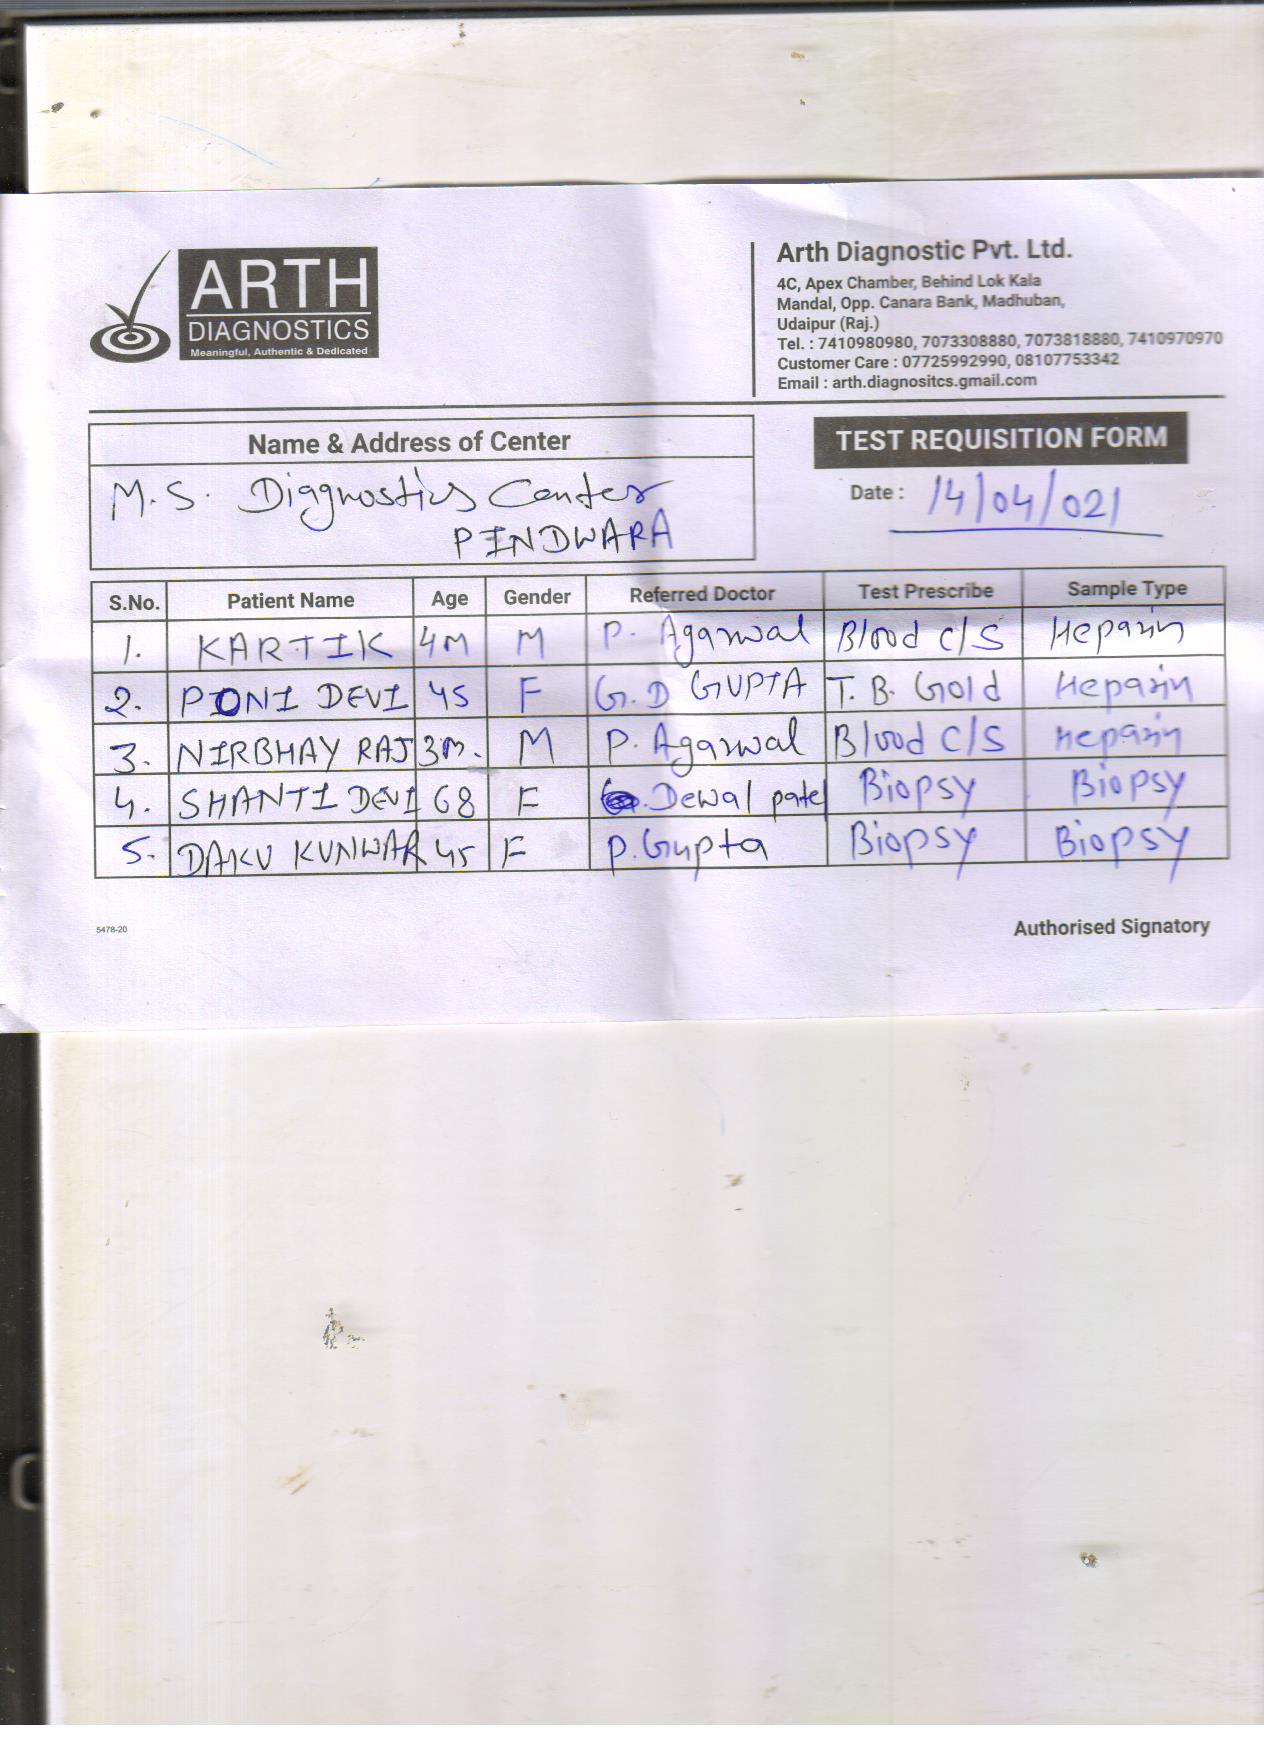 ARTH
DIAGNOSTICS
Meaningful, Authentic & Dedicated
Arth Diagnostic Pvt. Ltd.
4C, Apex Chamber, Behind Lok Kala
Mandal, Opp. Canara Bank, Madhuban,
Udaipur (Raj.)
Tel. : 7410980980, 7073308880, 7073818880, 7410970970
Customer Care : 07725992990, 08107753342
Email : arth.diagnositcs.gmail.com
Name & Address of Center
M.S. Diagnostics Center
PINDWARA
TEST REQUISITION FORM
Date : 14/04/021
S.No. Patient Name Age Gender Referred Doctor Test Prescribe Sample Type
1. KARTIK 4M M P. Agarwal Blood C/S Heparin
2. PONI DEVI 45 F G.D GUPTA T.B. Gold Heparin
3. NIRBHAY RAJ 3M. M P. Agarwal Blood C/S Heparin
4. SHANTI DEVI 68 F Dewal patel Biopsy Biopsy
5. DAKU KUNWAR 45 F P. Gupta Biopsy Biopsy
5478-20
Authorised Signatory